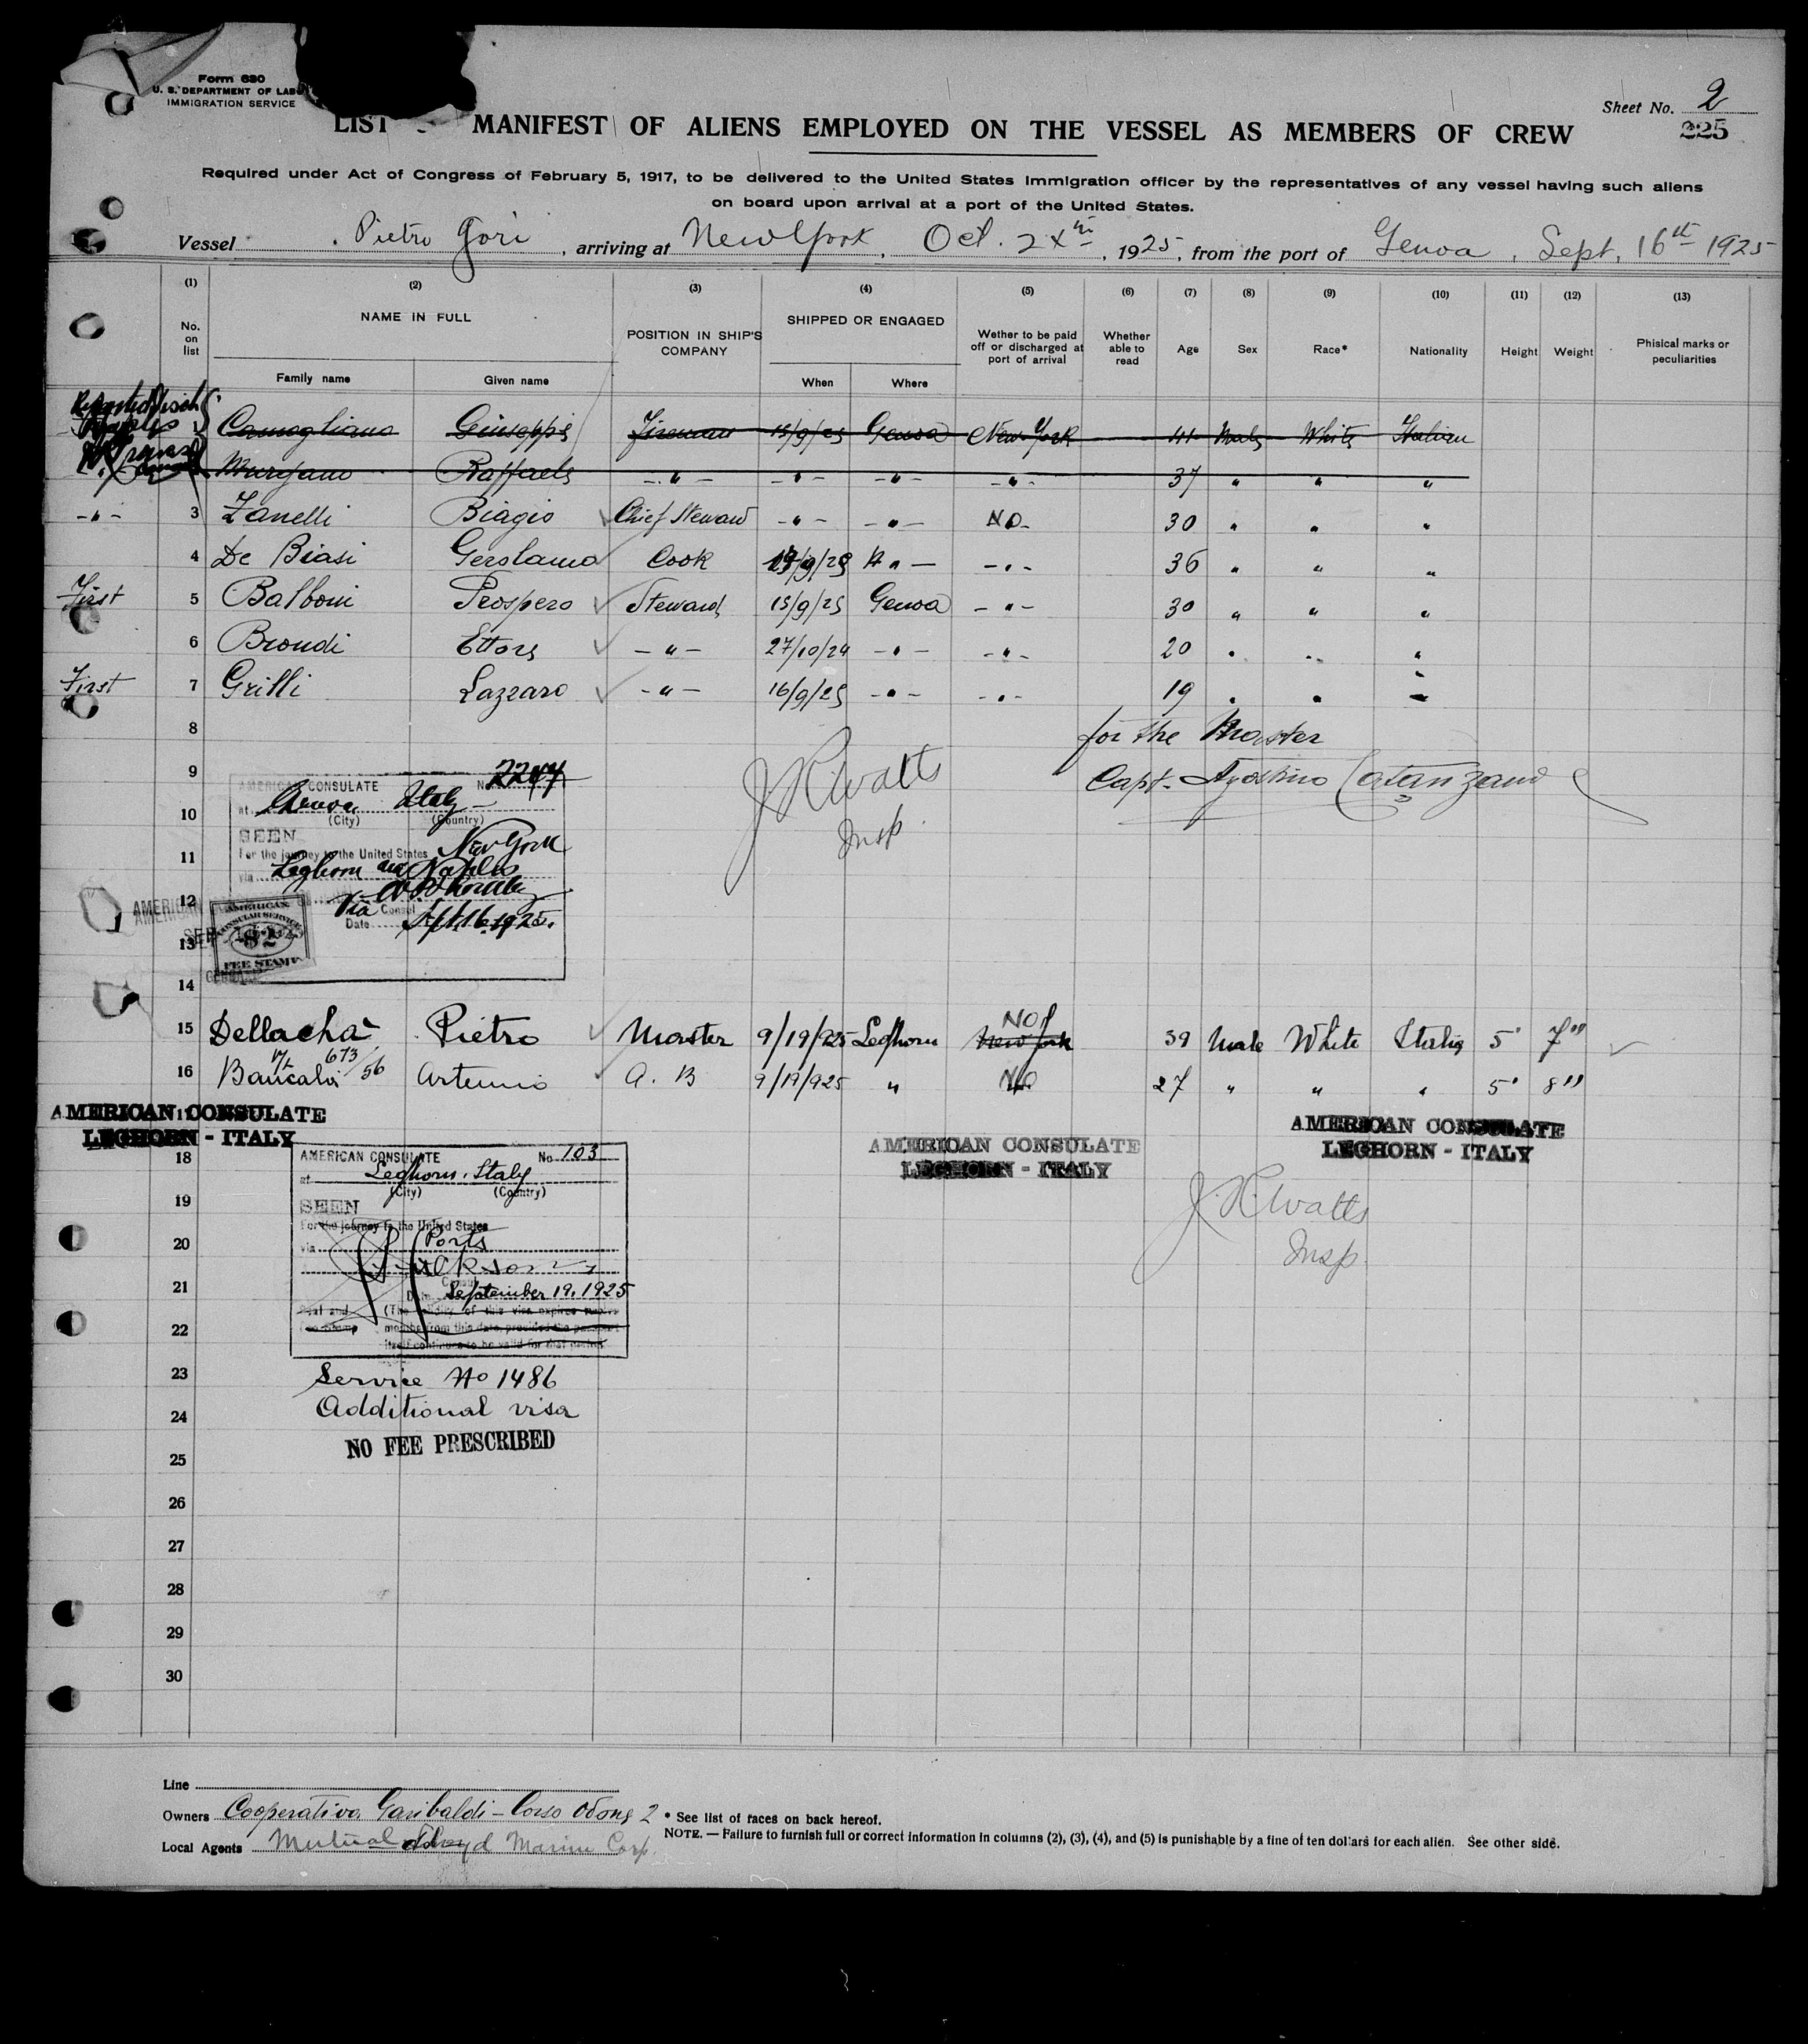 Form 680
U. S. DEPARTMENT OF LAB
IMMIGRATION SERVICE
Sheet No. 2
225
LIST MANIFEST OF ALIENS EMPLOYED ON THE VESSEL AS MEMBERS OF CREW
Required under Act of Congress of February 5, 1917, to be delivered to the United States Immigration officer by the representatives of any vessel having such aliens
on board upon arrival at a port of the United States.
Vessel Pietro Gori, arriving at New York, Oct. 1925, from the port of Genoa, Sept. 16th 1925
(1) (2) (3) (4) (5) (6) (7) (8) (9) (10) (11) (12) (13)
No. on list NAME IN FULL POSITION IN SHIP'S COMPANY SHIPPED OR ENGAGED Wether to be paid off or discharged at port of arrival Whether able to read Age Sex Race* Nationality Height Weight Phisical marks or peculiarities
Family name Given name When Where
Camogliano Giuseppe Fireman 15/9/25 Genoa New York 41 Male White Italian
Murgano Raffaele - " - - " - - " - - " - 37 " " "
- " - 3 Zanelli Biagio Chief Steward - " - - " - NO 30 " " "
4 De Biasi Gerolamo Cook - " - 36 " " "
First 5 Balboni Prospero Steward 15/9/25 Genoa - " - 30 " " "
6 Biondi Ettore - " - 27/10/24 - " - - " - 20 " " "
First 7 Grilli Lazzaro - " - 16/9/25 - " - - " - 19 " " "
8 for the Master
9 Capt. Agostino Catanzano
J R Watts
Insp.
AMERICAN CONSULATE No. 2244
10 at Genoa Italy
(City) (Country)
SEEN
11 For the journey to the United States New York
via Leghorn and Naples
12
Consul
Date Sept. 16. 1925.
AMERICAN
CONSULAR SERVICE
$2
FEE STAMP
13
14
15 Dellachà Pietro Master 9/19/925 Leghorn NO New York 39 Male White Italia 5' 7"
673/56
16 Bancalà Artemio A. B 9/19/925 " NO 27 " " " 5' 8"
17
AMERICAN CONSULATE
LEGHORN - ITALY
AMERICAN CONSULATE
LEGHORN - ITALY
AMERICAN CONSULATE
LEGHORN - ITALY
18 AMERICAN CONSULATE No 103
at Leghorn, Italy
(City) (Country)
19 SEEN
For the journey to the United States
20 via Ports
21 Date September 19, 1925
(The validity of this visa expires twelve
22 months from this date, provided the passport
itself continues to be valid for that period.
J. R. Watts
Insp.
23 Service No 1486
24 Additional visa
NO FEE PRESCRIBED
25
26
27
28
29
30
Line
Owners Cooperativa Garibaldi - Corso Odone 2
* See list of races on back hereof.
Local Agents Mutual Marine Corp.
NOTE. — Failure to furnish full or correct information in columns (2), (3), (4), and (5) is punishable by a fine of ten dollars for each alien. See other side.